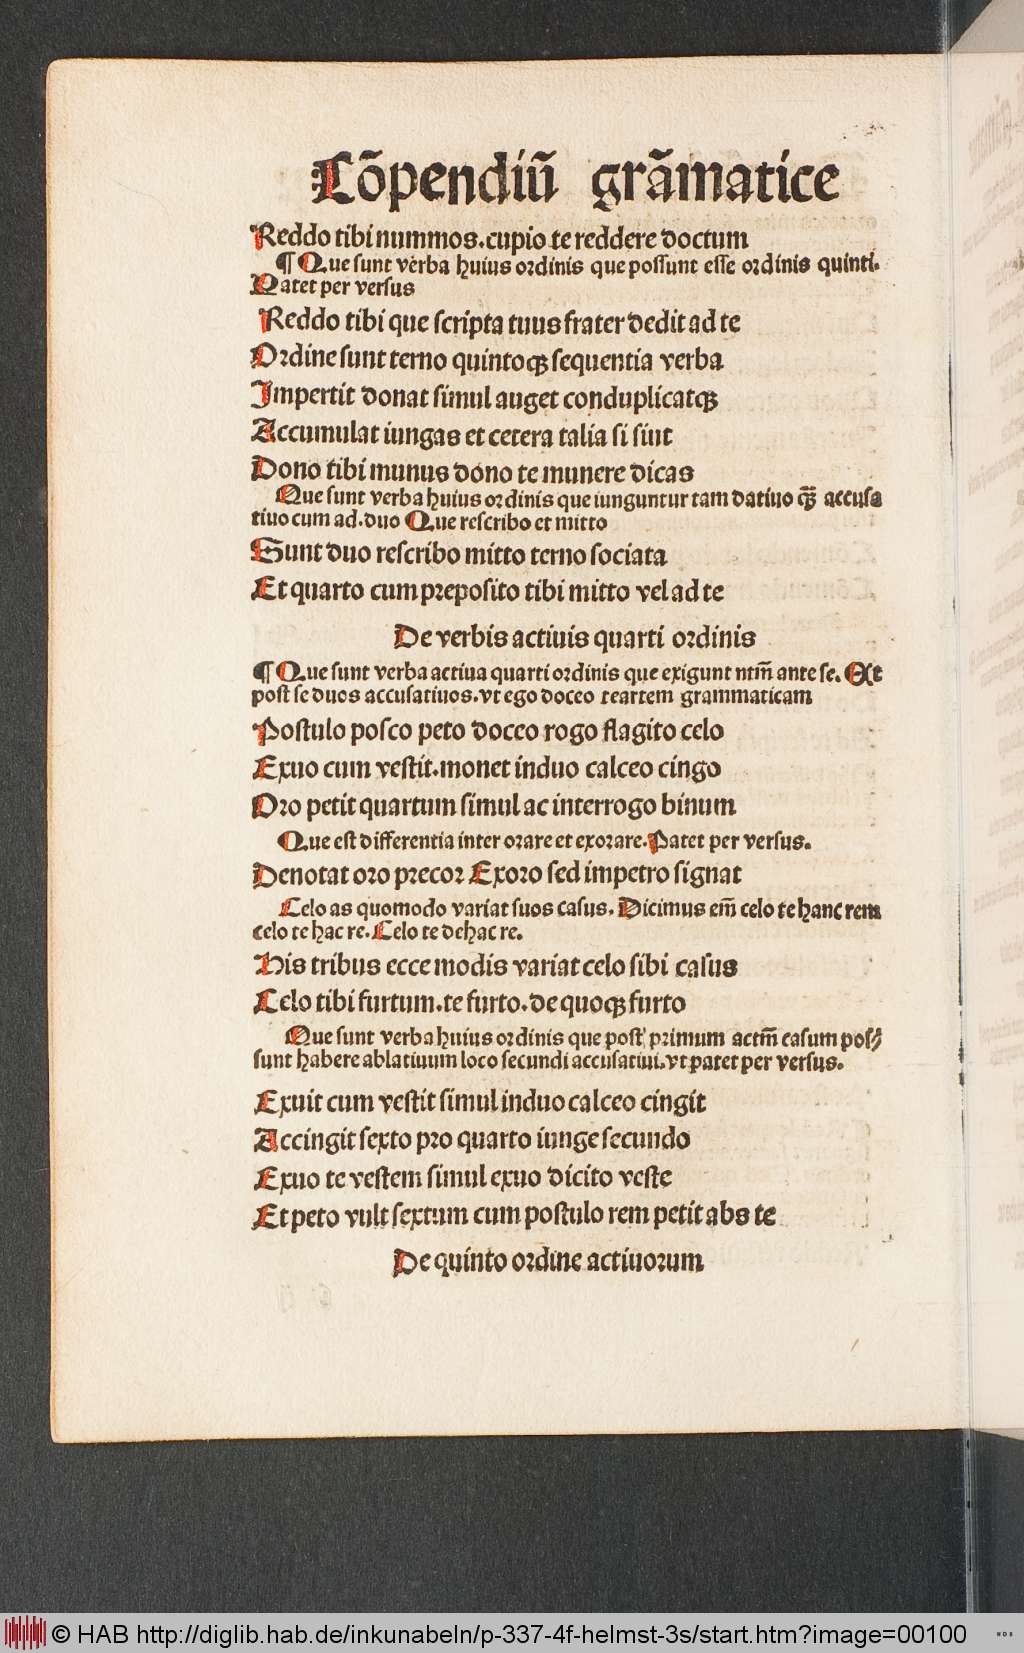 Cõpendiũ grãmatice
Reddo tibi nummos.cupio te reddere doctum
¶ Que sunt verba huius ordinis que possunt esse ordinis quinti.
Patet per versus
Reddo tibi que scripta tuus frater dedit ad te
Ordine sunt terno quintoqꝫ sequentia verba
Impertit donat simul auget conduplicatqꝫ
Accumulat iungas et cetera talia si sint
Dono tibi munus dono te munere dicas
Que sunt verba huius ordinis que iunguntur tam datiuo qꝫ̃ accusa
tiuo cum ad.duo Que rescribo et mitto
Sunt duo rescribo mitto terno sociata
Et quarto cum preposito tibi mitto vel ad te
De verbis actiuis quarti ordinis
¶ Que sunt verba actiua quarti ordinis que exigunt ntm̃ ante se. Et
post se duos accusatiuos.vt ego doceo te artem grammaticam
Postulo posco peto doceo rogo flagito celo
Exuo cum vestit.monet induo calceo cingo
Oro petit quartum simul ac interrogo binum
Que est differentia inter orare et exorare.Patet per versus.
Denotat oro precor Exoro sed impetro signat
Celo as quomodo variat suos casus. Dicimus em̃ celo te hanc rem
celo te hac re.Celo te de hac re.
His tribus ecce modis variat celo sibi casus
Celo tibi furtum.te furto.de quoqꝫ furto
Que sunt verba huius ordinis que post primum actm̃ casum pos⸗
sunt habere ablatiuum loco secundi accusatiui.vt patet per versus.
Exuit cum vestit simul induo calceo cingit
Accingit sexto pro quarto iunge secundo
Exuo te vestem simul exuo dicito veste
Et peto vult sextum cum postulo rem petit abs te
De quinto ordine actiuorum
© HAB http://diglib.hab.de/inkunabeln/p-337-4f-helmst-3s/start.htm?image=00100